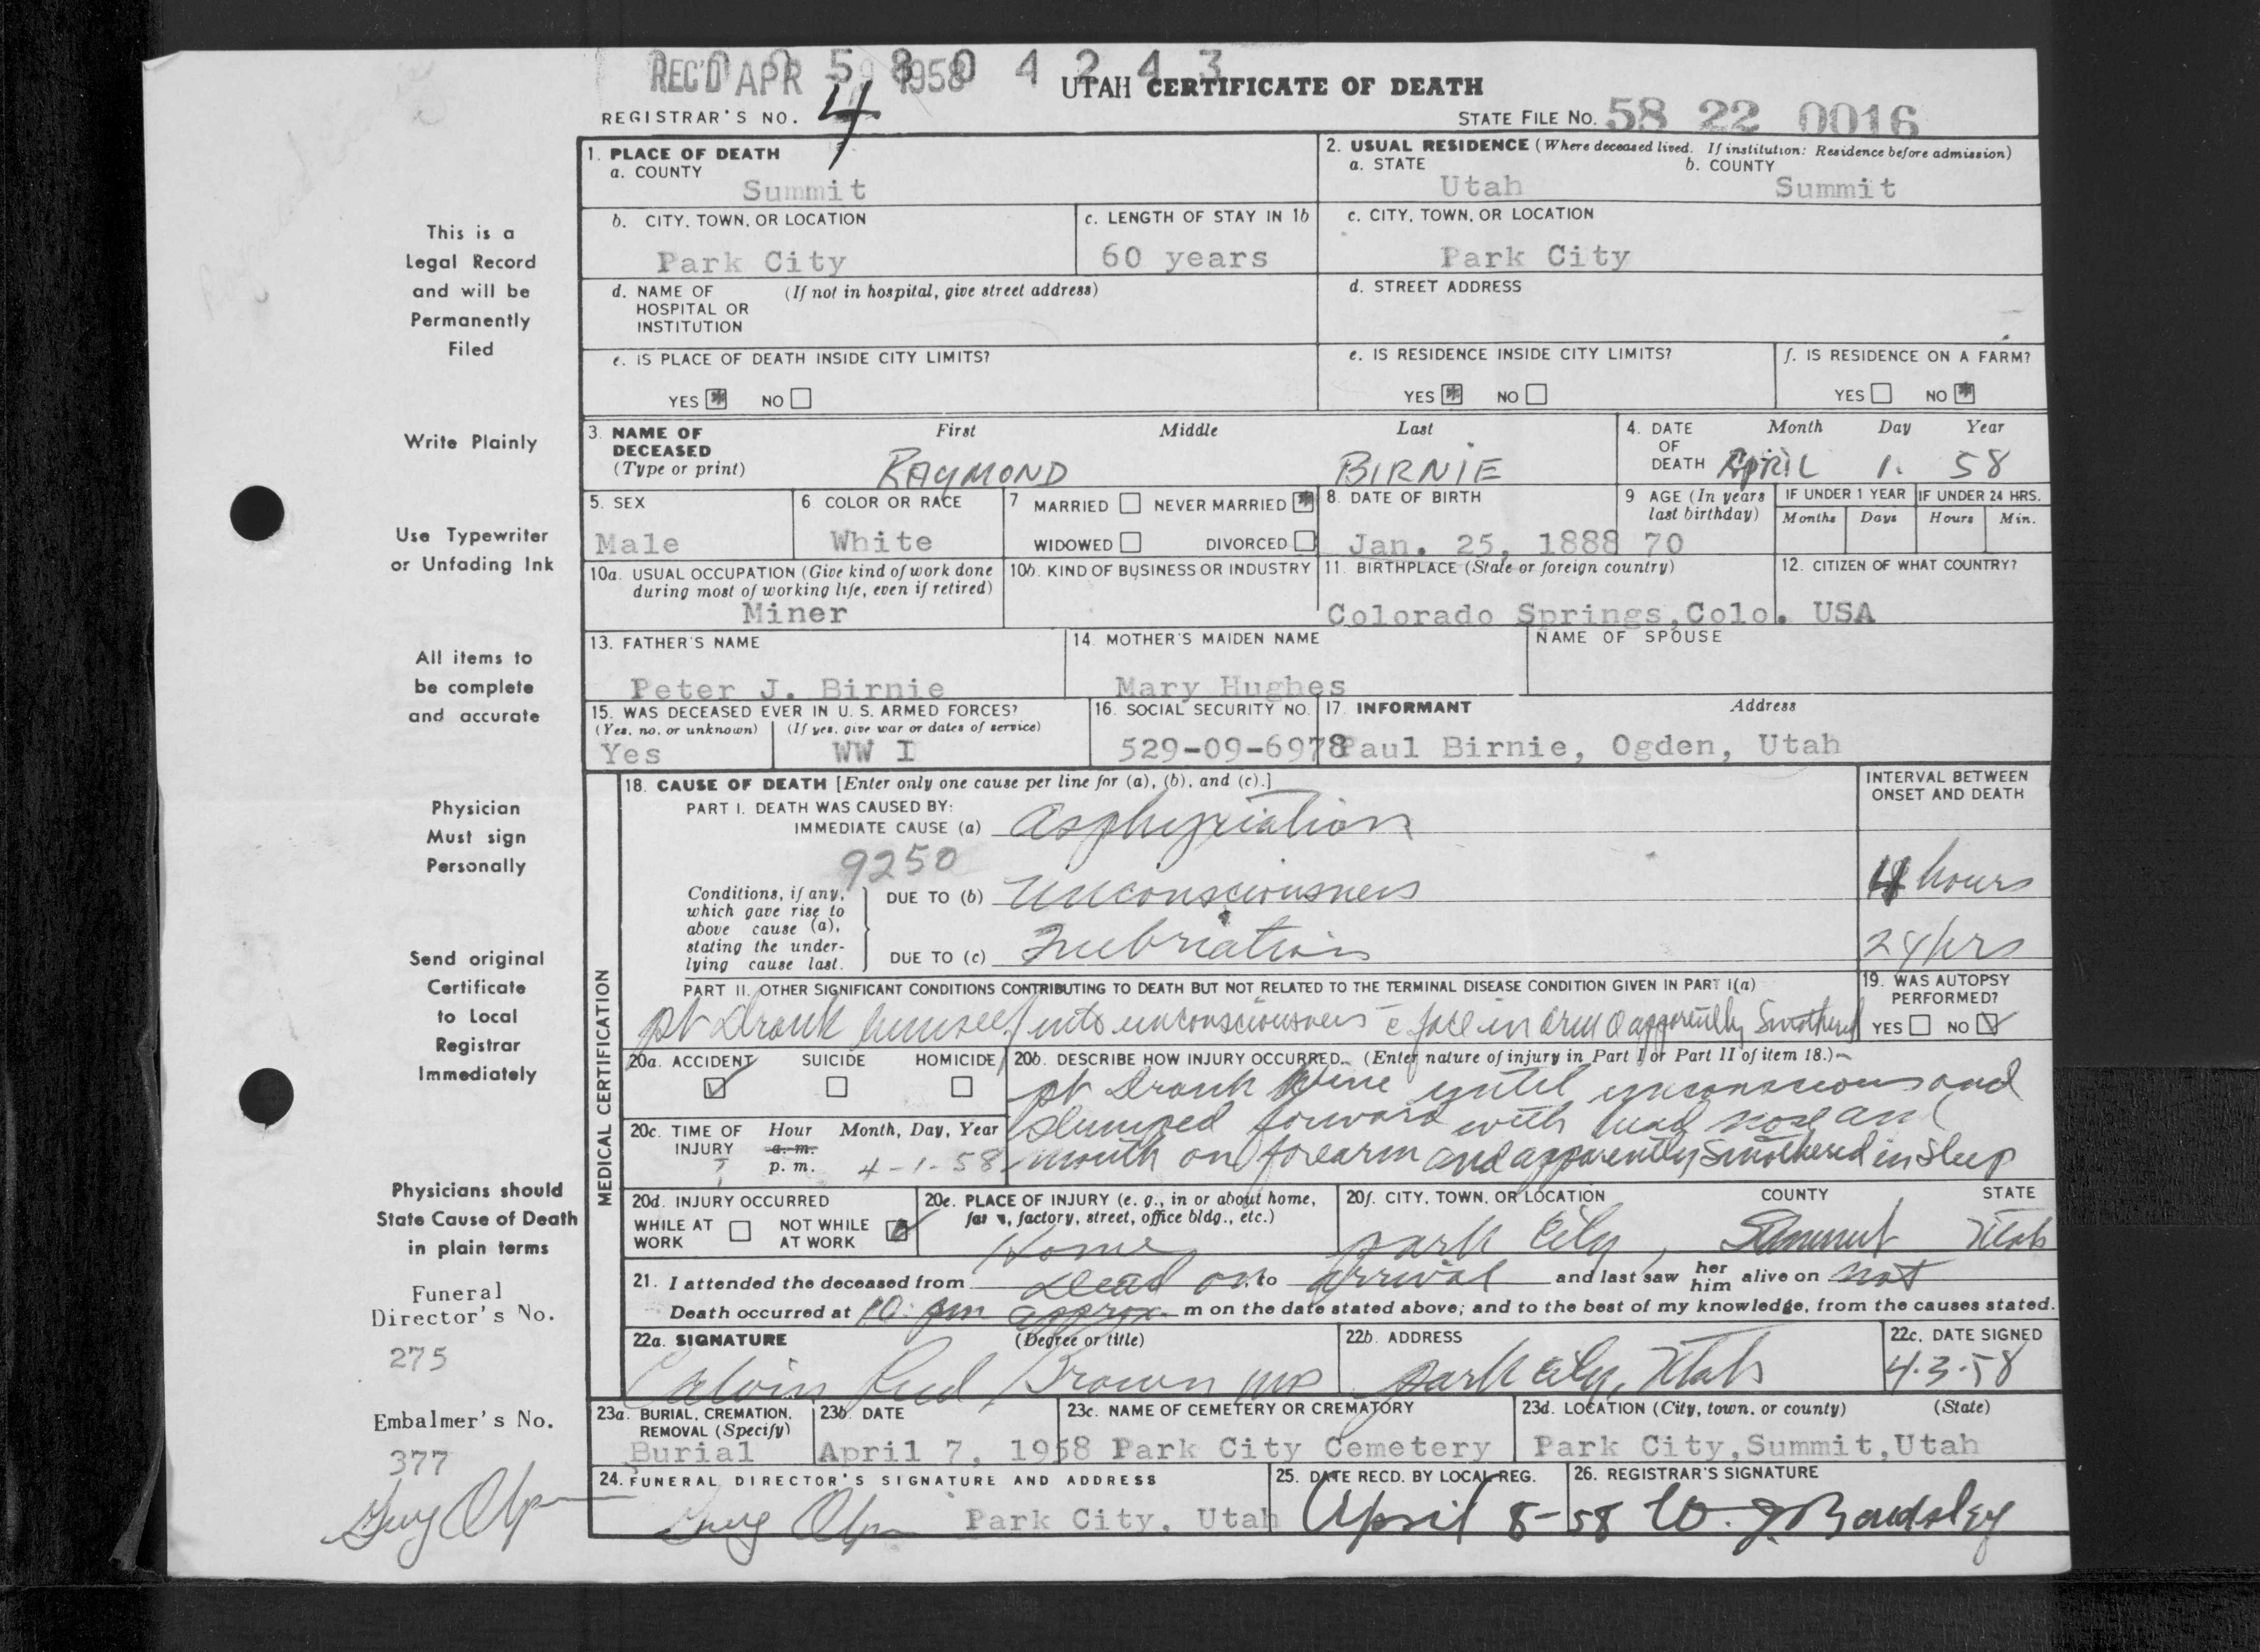 REC'D APR 9 1958
5 8 0 4 2 4 3
UTAH CERTIFICATE OF DEATH
REGISTRAR'S NO. 4
STATE FILE NO. 58 22 0016
This is a
Legal Record
and will be
Permanently
Filed
Write Plainly
Use Typewriter
or Unfading Ink
All items to
be complete
and accurate
Physician
Must sign
Personally
Send original
Certificate
to Local
Registrar
Immediately
Physicians should
State Cause of Death
in plain terms
Funeral
Director's No.
275
Embalmer's No.
377
1. PLACE OF DEATH
a. COUNTY
Summit
2. USUAL RESIDENCE (Where deceased lived. If institution: Residence before admission)
a. STATE b. COUNTY
Utah Summit
b. CITY, TOWN, OR LOCATION
Park City
c. LENGTH OF STAY IN 1b
60 years
c. CITY, TOWN, OR LOCATION
Park City
d. NAME OF (If not in hospital, give street address)
HOSPITAL OR
INSTITUTION
d. STREET ADDRESS
e. IS PLACE OF DEATH INSIDE CITY LIMITS?
YES NO
e. IS RESIDENCE INSIDE CITY LIMITS?
YES NO
f. IS RESIDENCE ON A FARM?
YES NO
3. NAME OF DECEASED (Type or print)
First Middle Last
RAYMOND BIRNIE
4. DATE OF DEATH
Month Day Year
APRIL 1. 58
5. SEX
Male
6 COLOR OR RACE
White
7 MARRIED NEVER MARRIED
WIDOWED DIVORCED
8. DATE OF BIRTH
Jan. 25, 1888
9 AGE (In years last birthday)
70
IF UNDER 1 YEAR IF UNDER 24 HRS.
Months Days Hours Min.
10a. USUAL OCCUPATION (Give kind of work done
during most of working life, even if retired)
Miner
10b. KIND OF BUSINESS OR INDUSTRY
11. BIRTHPLACE (State or foreign country)
Colorado Springs,Colo.
12. CITIZEN OF WHAT COUNTRY?
USA
13. FATHER'S NAME
Peter J. Birnie
14. MOTHER'S MAIDEN NAME
Mary Hughes
NAME OF SPOUSE
15. WAS DECEASED EVER IN U. S. ARMED FORCES?
(Yes, no, or unknown) (If yes, give war or dates of service)
Yes WW I
16. SOCIAL SECURITY NO.
529-09-6978
17. INFORMANT Address
Paul Birnie, Ogden, Utah
MEDICAL CERTIFICATION
18. CAUSE OF DEATH [Enter only one cause per line for (a), (b), and (c).]
INTERVAL BETWEEN
ONSET AND DEATH
PART I. DEATH WAS CAUSED BY:
IMMEDIATE CAUSE (a) Asphyxiation
9250
Conditions, if any,
which gave rise to
above cause (a),
stating the under-
lying cause last.
DUE TO (b) Unconsciousness
4 hours
DUE TO (c) Inebriation
24 hrs
PART II. OTHER SIGNIFICANT CONDITIONS CONTRIBUTING TO DEATH BUT NOT RELATED TO THE TERMINAL DISEASE CONDITION GIVEN IN PART I(a)
pt Drank himself into unconsciousness c̄ face in arm & apparently Smothered
19. WAS AUTOPSY
PERFORMED?
YES NO
20a. ACCIDENT SUICIDE HOMICIDE
20b. DESCRIBE HOW INJURY OCCURRED. (Enter nature of injury in Part I or Part II of item 18.)
pt Drank Wine until unconscious and
slumped forward with head nose and
mouth on forearm and apparently Smothered in Sleep
20c. TIME OF INJURY
Hour Month, Day, Year
a. m.
p. m. 4-1-58
20d. INJURY OCCURRED
WHILE AT WORK NOT WHILE AT WORK
20e. PLACE OF INJURY (e. g., in or about home,
farm, factory, street, office bldg., etc.)
Home
20f. CITY, TOWN, OR LOCATION COUNTY STATE
Park City, Summit Utah
21. I attended the deceased from Dead on to arrival and last saw her him alive on not
Death occurred at 10 pm approx m on the date stated above; and to the best of my knowledge, from the causes stated.
22a. SIGNATURE (Degree or title)
Calvin Reed Brown MD
22b. ADDRESS
Park City, Utah
22c. DATE SIGNED
4.3.58
23a. BURIAL, CREMATION,
REMOVAL (Specify)
Burial
23b. DATE
April 7, 1958
23c. NAME OF CEMETERY OR CREMATORY
Park City Cemetery
23d. LOCATION (City, town, or county) (State)
Park City,Summit,Utah
24. FUNERAL DIRECTOR'S SIGNATURE AND ADDRESS
Park City, Utah
25. DATE RECD. BY LOCAL REG.
April 8-58
26. REGISTRAR'S SIGNATURE